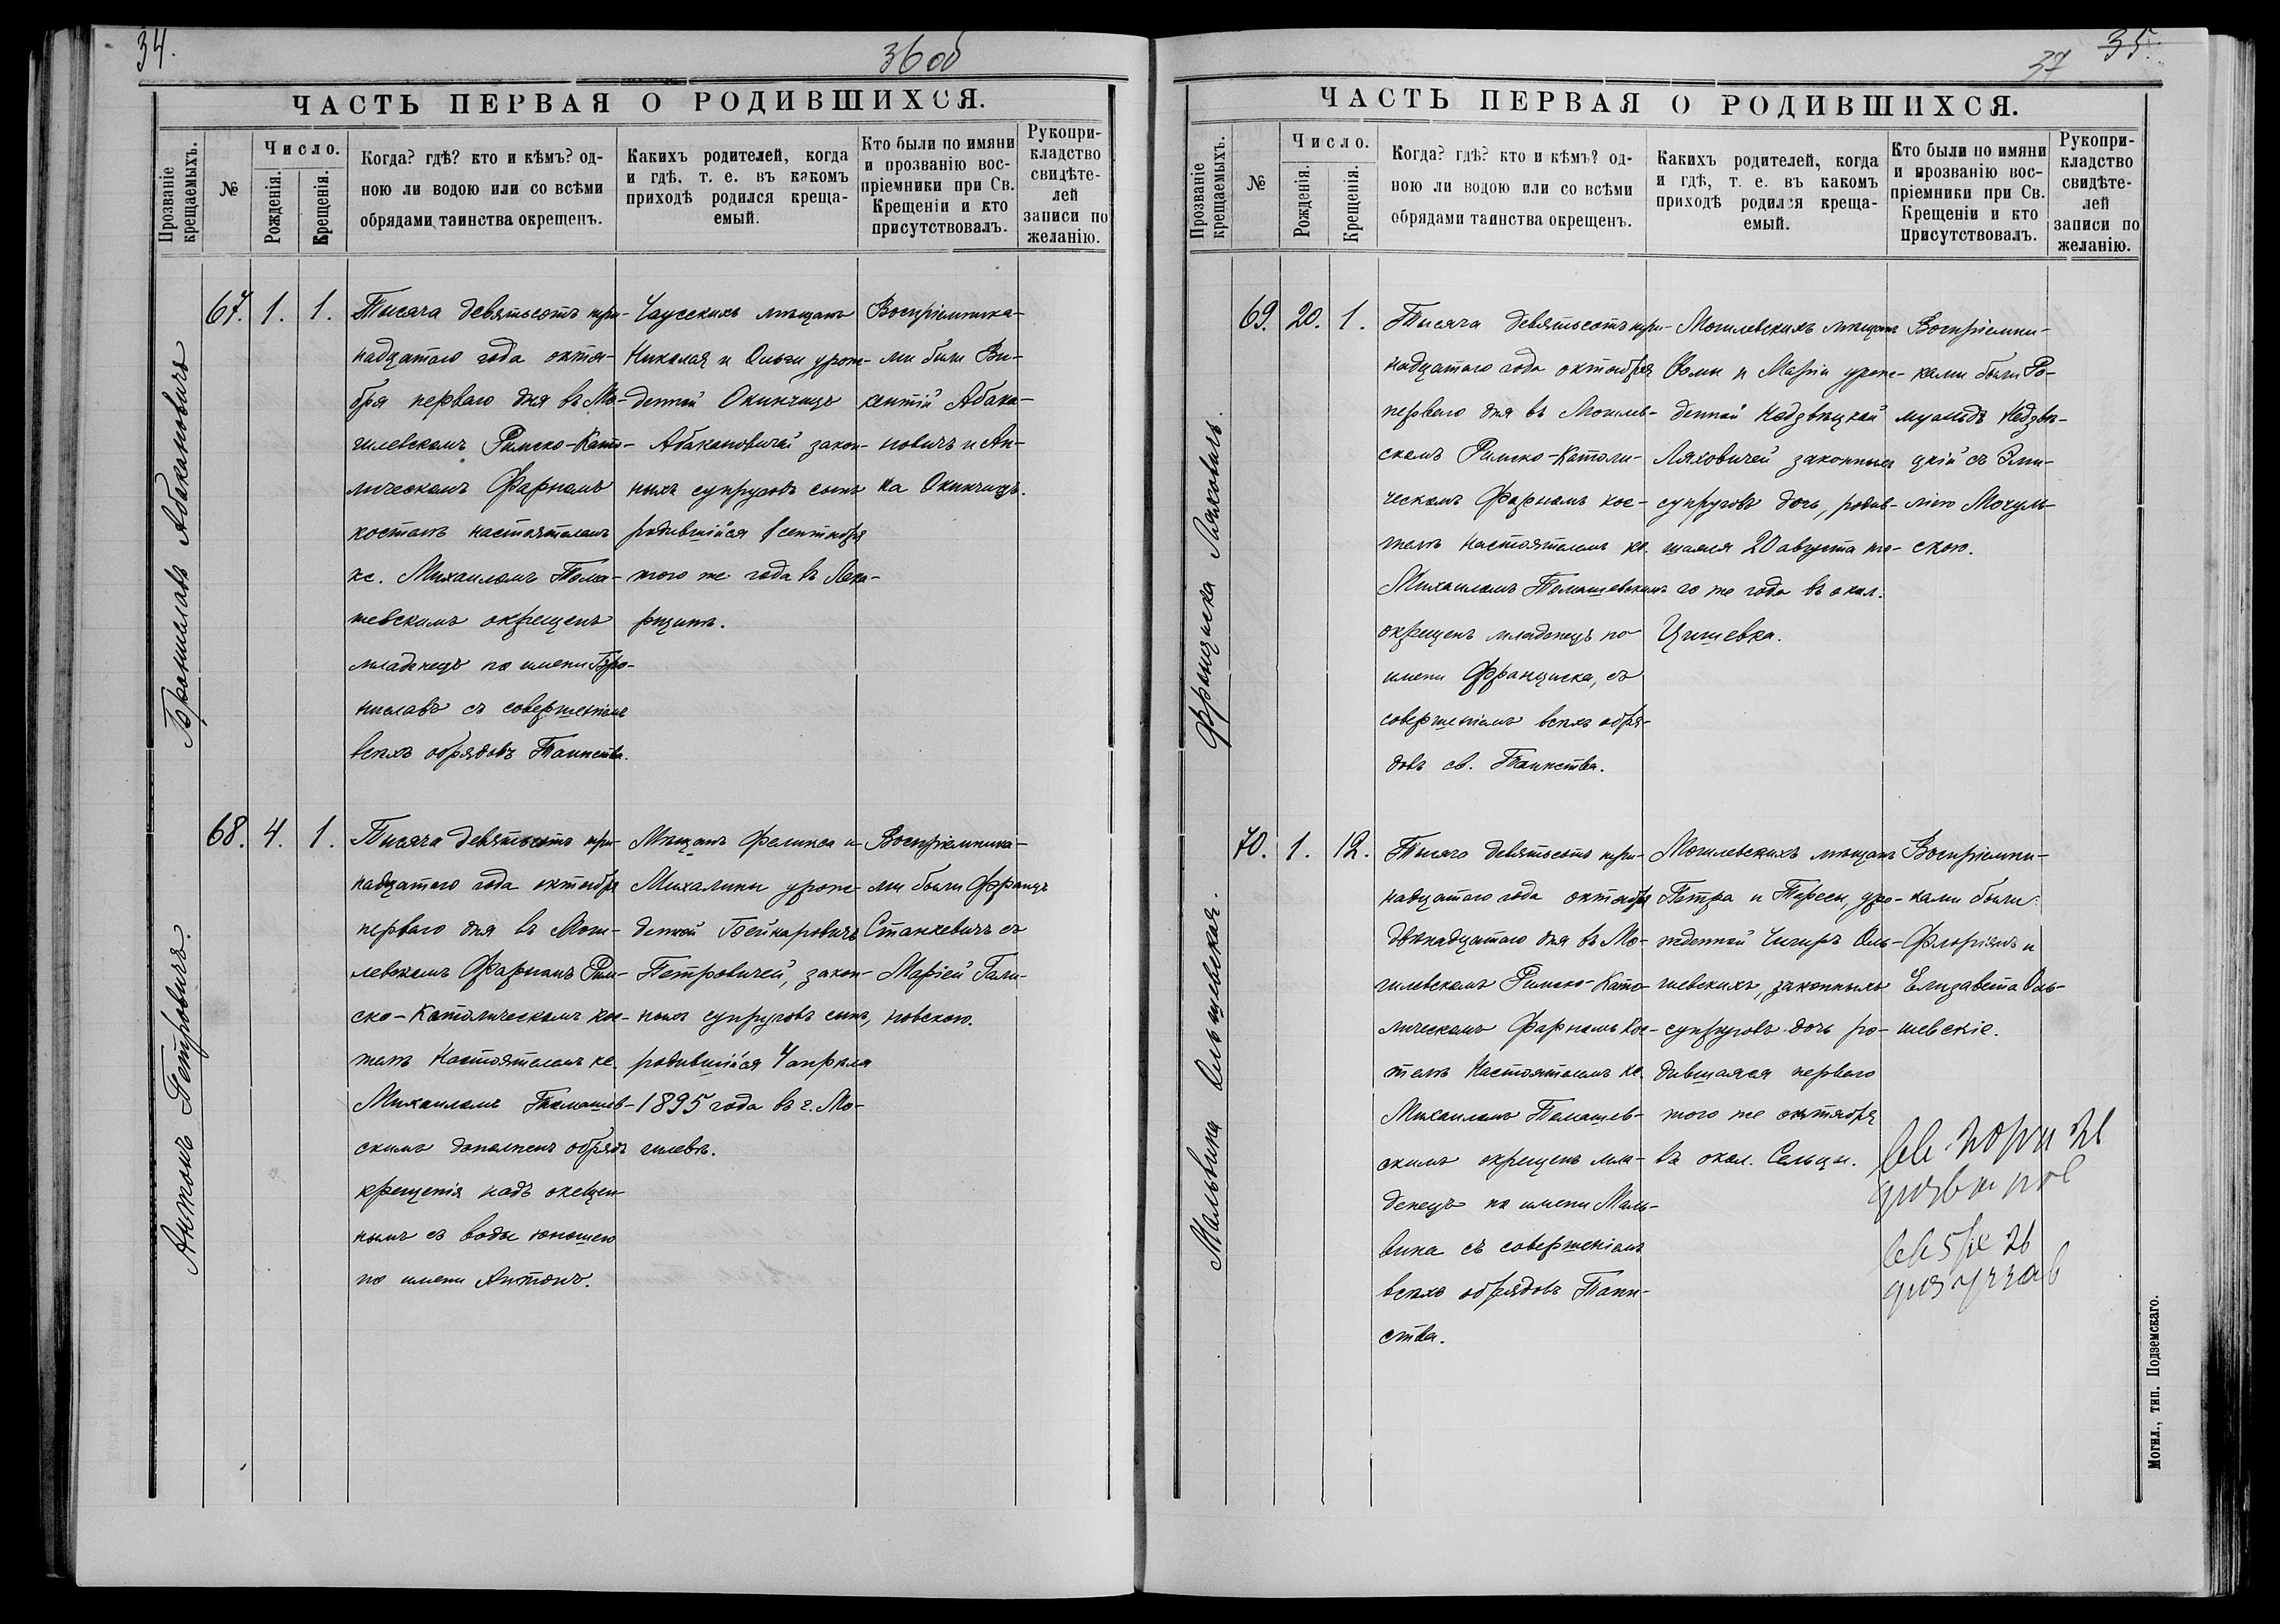 34.
36 об
ЧАСТЬ ПЕРВАЯ О РОДИВШИХСЯ.
Прозваніе крещаемыхъ.
№
Число.
Рожденія.
Крещенія.
Когда? гдѣ? кто и кѣмъ? од-
ною ли водою или со всѣми
обрядами таинства окрещенъ.
Какихъ родителей, когда
и гдѣ, т. е. въ какомъ
приходѣ родился креща-
емый.
Кто были по имяни
и прозванію вос-
пріемники при Св.
Крещеніи и кто
присутствовалъ.
Рукопри-
кладство
свидѣте-
лей
записи по
желанію.
Брониславъ Абакановичъ
67. 1. 1.
Тысяча девятьсотъ три-
надцатаго года октя-
бря перваго дня въ Мо-
гилевскомъ Римско-Като-
лическомъ Фарномъ
костелѣ настоятелемъ
кс. Михаиломъ Тома-
шевскимъ окрещенъ
младенецъ по имени Бро-
ниславъ съ совершеніемъ
всѣхъ обрядовъ Таинства.
Чаусскихъ мѣщанъ
Николая и Ольги урож-
денной Окинчицъ
Абакановичей закон-
ныхъ супруговъ сынъ
родившійся 1 сентября
того же года въ
Воспріемника-
ми были Ви-
кентій Абака-
новичъ и Ан-
на Окинчицъ.
Антонъ Петровичъ.
68. 4. 1.
Тысяча девятьсотъ три-
надцатаго года октября
перваго дня въ Моги-
левскомъ Фарномъ Рим-
ско-Католическомъ кос-
телѣ Настоятелемъ кс.
Михаиломъ Томашев-
скимъ дополненъ обрядъ
крещенія надъ окрещен-
нымъ съ воды юношею
по имени Антонъ.
Мѣщанъ Феликса и
Михалины урож-
денной Бейнаровичъ
Петровичей, закон-
ныхъ супруговъ сынъ,
родившійся 4 апрѣля
1895 года въ г. Мо-
гилевѣ.
Воспріемника-
ми были Францъ
Станкевичъ съ
Маріей Гали-
новскою.
37
35.
ЧАСТЬ ПЕРВАЯ О РОДИВШИХСЯ.
Прозваніе крещаемыхъ.
№
Число.
Рожденія.
Крещенія.
Когда? гдѣ? кто и кѣмъ? од-
ною ли водою или со всѣми
обрядами таинства окрещенъ.
Какихъ родителей, когда
и гдѣ, т. е. въ каком
приходѣ родился креща-
емый.
Кто были по имяни
и прозванію вос-
пріемники при Св.
Крещеніи и кто
присутствовалъ.
Рукопри-
кладство
свидѣте-
лей
записи по
желанію.
Франциска Ляховичъ.
69. 20. 1.
Тысяча девятьсотъ три-
надцатаго года октября
перваго дня въ Могилев-
скомъ Римско-Католи-
ческомъ Фарномъ кос-
телѣ настоятелемъ кс.
Михаиломъ Томашевскимъ
окрещенъ младенецъ по
имени Франциска, съ
совершеніемъ всѣхъ обря-
довъ св. Таинства.
Могилевскихъ мѣщанъ
Ѳомы и Маріи урож-
денной Недзвѣцкой
Ляховичей законныхъ
супруговъ дочь, родив-
шаяся 20 августа то-
го же года въ окол.
Цишевка.
Воспріемни-
ками были Ро-
муальдъ Недзвѣ-
цкій съ Эми-
ліею Мочуль-
скою.
Мальвина Ольшевская.
70. 1. 12.
Тысяча девятьсотъ три-
надцатаго года октября
двѣнадцатаго дня въ Мо-
гилевскомъ Римско-Като-
лическомъ Фарномъ Кос-
телѣ Настоятелемъ кс.
Михаиломъ Томашев-
скимъ окрещенъ мла-
денецъ по имени Маль-
вина съ совершеніемъ
всѣхъ обрядовъ Таин-
ства.
Могилевскихъ мѣщанъ
Петра и Терезы, уро-
жденной Чигиръ Оль-
шевскихъ, законныхъ
супруговъ дочь ро-
дившаяся перваго
того же октября
въ окол. Сельцы.
Воспріемни-
ками были:
Флоріянъ и
Елизавета Оль-
шевскіе.
Могил., тип. Подземскаго.